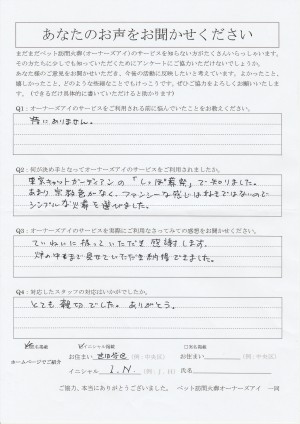 あなたのお声をお聞かせください
まだまだペット訪問火葬(オーナーズアイ)のサービスを知らない方がたくさんいらっしゃいます。
その方たちに少しでも知っていただくためにアンケートにご協力いただけないでしょうか。
あなた様のご意見をお聞かせいただき、今後の活動に反映したいと考えています。よかったこと、
嬉しかったこと、どのような些細なことでもけっこうです。ぜひご協力をよろしくお願いいたしま
す。(できるだけ具体的に書いていただけると助かります)
Q1：オーナーズアイのサービスをご利用される前に悩んでいたことをお教えください。
特にありません。
Q2：何が決め手となってオーナーズアイのサービスをご利用されましたか。
東京キャットガーディアンの「しっぽ葬祭」で知りました。
あまり宗教色がなく、ファンシーな感じは好きではないので
シンプルな火葬を選びました。
Q3：オーナーズアイのサービスを実際にご利用なさってみての感想をお聞かせください。
ていねいに扱っていただき感謝します。
炉の中まで見せていただき納得できました。
Q4：対応したスタッフの対応はいかがでしたか。
とても親切でした。ありがとう。
匿名掲載
イニシャル掲載
□実名掲載
ホームページでご紹介
お住まい
(例：中央区)
お住まい
(例：中央区)
イニシャル I.N. (例：I．H)
氏名
ご協力、本当にありがとうございました。 ペット訪問火葬オーナーズアイ 一同